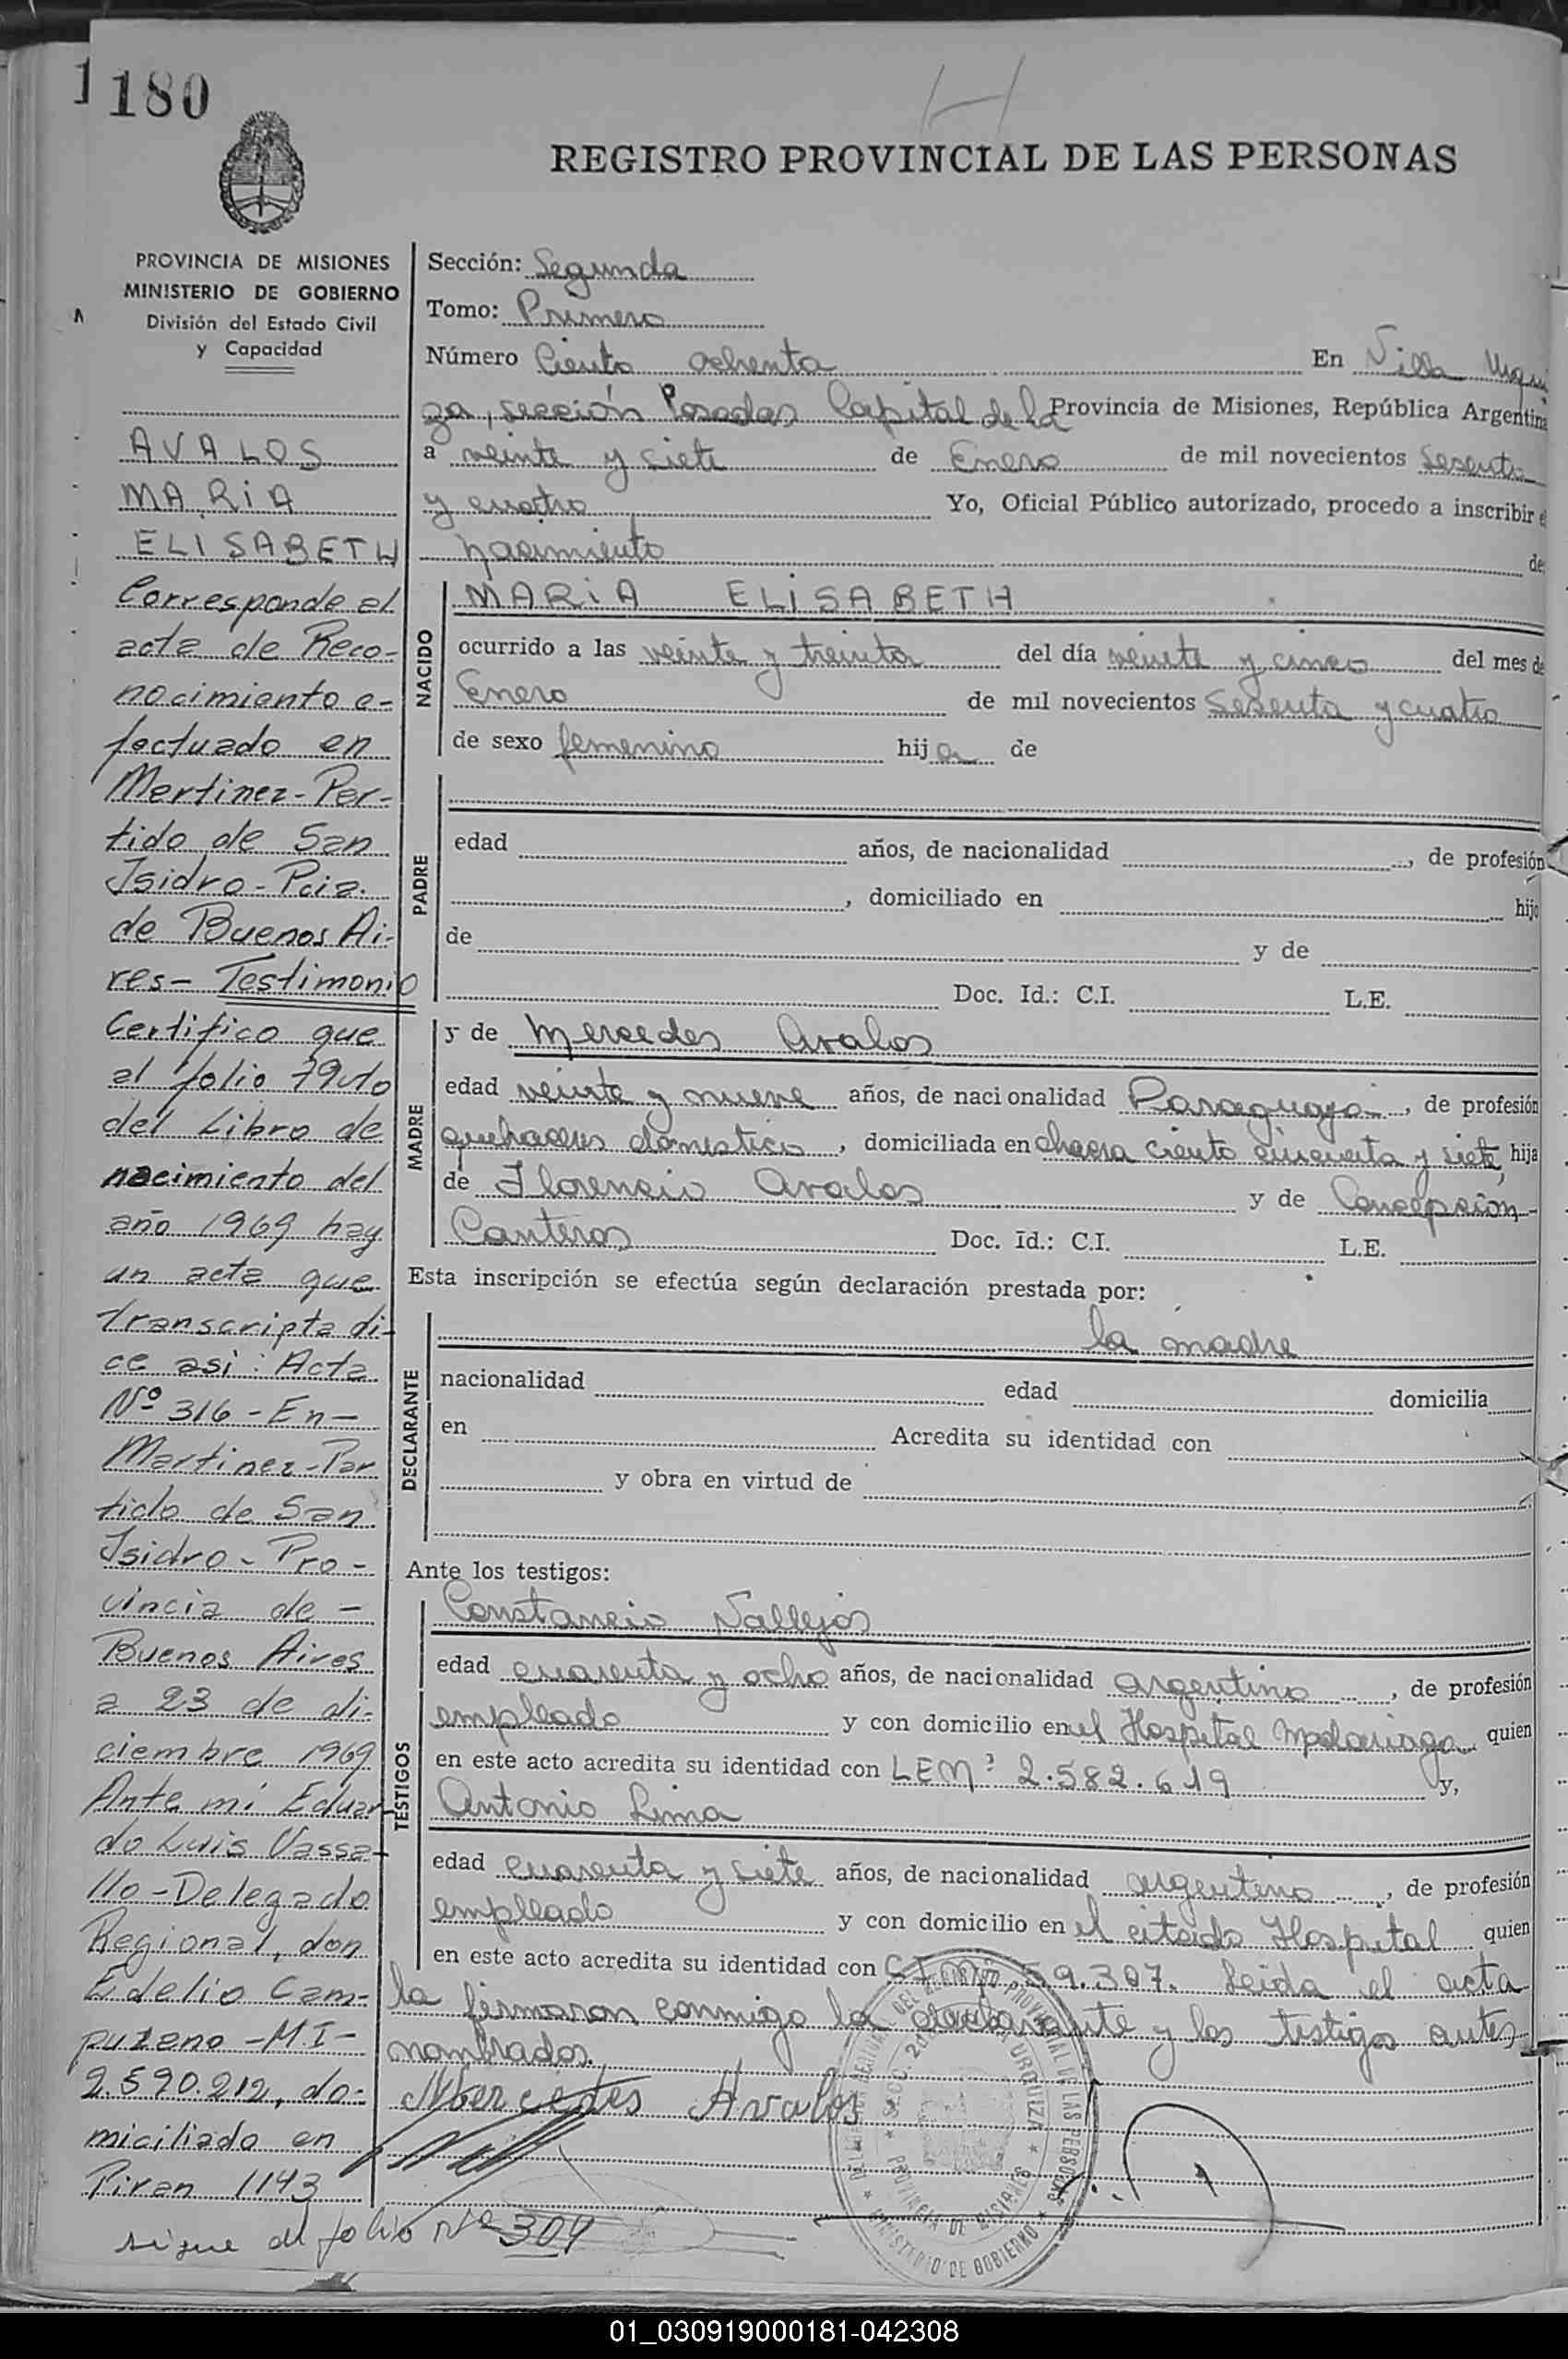 1 180
H
REGISTRO PROVINCIAL DE LAS PERSONAS
PROVINCIA DE MISIONES
MINISTERIO DE GOBIERNO
División del Estado Civil
y Capacidad
AVALOS
MARIA
ELISABETH
Corresponde al
acta de Reco-
nocimiento e-
fectuado en
Martinez - Par-
tido de San
Isidro - Pcia.
de Buenos Ai-
res - Testimonio
Certifico que
al folio 79vto
del Libro de
nacimiento del
año 1969 hay
un acta que
transcripta di-
ce asi: Acta
Nº 316 - En -
Martinez - Par
tido de San
Isidro - Pro -
vincia de -
Buenos Aires
a 23 de di-
ciembre 1969
Ante mi Eduar-
do Luis Vassa-
llo - Delegado
Regional, don
Edelio Cam-
puzano - M.I -
2.590.212, do-
miciliado en
Piran 1143
sigue al folio Nº 304
Sección: Segunda
Tomo: Primero
Número Ciento ochenta En Villa Urqui
za, sección Posadas Capital de la Provincia de Misiones, República Argentina
a veinte y siete de Enero de mil novecientos Sesenta
y cuatro Yo, Oficial Público autorizado, procedo a inscribir e
nacimiento de
NACIDO
MARIA ELISABETH
ocurrido a las veinte y treinta del día veinte y cinco del mes de
Enero de mil novecientos Sesenta y cuatro
de sexo femenino hija de
PADRE
edad años, de nacionalidad , de profesión
, domiciliado en hijo
de y de
Doc. Id.: C.I. L.E.
MADRE
y de Mercedes Avalos
edad veinte y nueve años, de nacionalidad Paraguaya , de profesión
quehaceres domesticos , domiciliada en chacra ciento cincuenta y siete, hija
de Florencio Avalos y de Concepción
Canteros Doc. Id.: C.I. L.E.
Esta inscripción se efectúa según declaración prestada por:
DECLARANTE
la madre
nacionalidad edad domicilia
en Acredita su identidad con
y obra en virtud de
Ante los testigos:
TESTIGOS
Constancio Vallejos
edad cuarenta y ocho años, de nacionalidad argentino , de profesión
empleado y con domicilio en el Hospital Madariaga quien
en este acto acredita su identidad con LENº 2.582.619 y,
Antonio Lima
edad cuarenta y siete años, de nacionalidad argentino , de profesión
empleado y con domicilio en el citado Hospital quien
en este acto acredita su identidad con C.I. 59.307. Leida el acta
la firmaron conmigo la declarante y los testigos antes
nombrados.
Mercedes Avalos
DEL REGISTRO PROVINCIAL DE LAS PERSONAS
URQUIZA
PROVINCIA DE MISIONES
MINISTERIO DE GOBIERNO
01_030919000181-042308